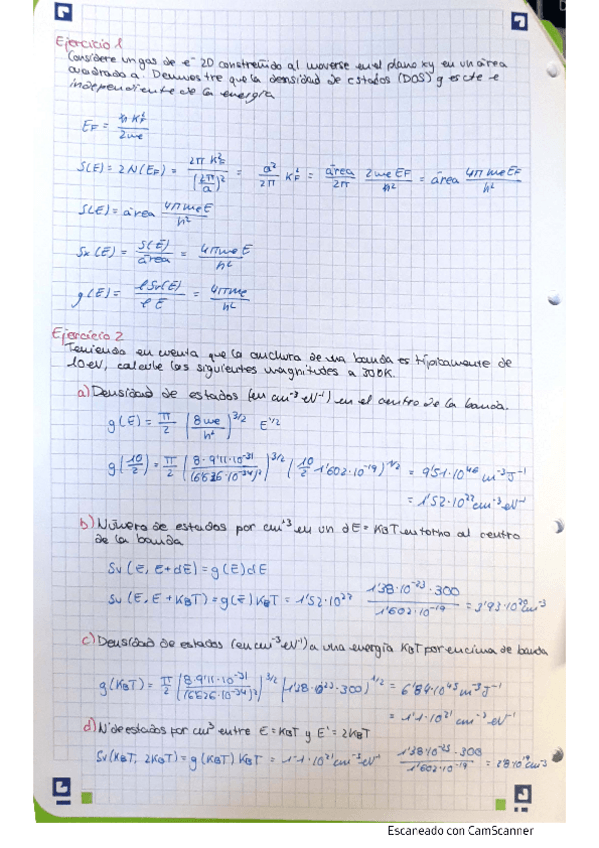 Ejercicio 1
Considere un gas de e⁻ 2D constreñido al moverse en el plano xy en un área
cuadrada a. Demuestre que la densidad de estados (DOS) g es cte e
independiente de la energía.
E_F = ħ K_F² / 2me
S(E) = 2N(E_F) = 2π K_F² / (2π/a)² = a²/2π K_F² = área/2π 2meE_F/ħ² = área 4πmeE_F/h²
S(E) = área 4πmeE/h²
Sv(E) = S(E)/área = 4πmeE/h²
g(E) = ℓSv(E)/ℓE = 4πme/h²
Ejercicio 2
Teniendo en cuenta que la anchura de una banda es típicamente de
10eV, calcule las siguientes magnitudes a 300K.
a) Densidad de estados (en cm⁻³ eV⁻¹) en el centro de la banda.
g(E) = π/2 (8me/h²)^3/2 E^1/2
g(10/2) = π/2 (8·9'11·10⁻³¹/(6'626·10⁻³⁴)²)^3/2 (10/2 1'602·10⁻¹⁹)^1/2 = 9'51·10⁴⁶ m⁻³J⁻¹
= 1'52·10²² cm⁻³eV⁻¹
b) Número de estados por cm⁻³ en un dE = K_BT en torno al centro
de la banda
Sv(E, E+dE) = g(E)dE
Sv(E, E+K_BT) = g(E)K_BT = 1'52·10²² 1'38·10⁻²³·300/1'602·10⁻¹⁹ = 3'93·10²⁰ cm⁻³
c) Densidad de estados (en cm⁻³ eV⁻¹) a una energía K_BT por encima de banda
g(K_BT) = π/2 (8·9'11·10⁻³¹/(6'626·10⁻³⁴)²)^3/2 (1'38·10⁻²³·300)^1/2 = 6'84·10⁴⁵ m⁻³J⁻¹
= 1'1·10²¹ cm⁻³ eV⁻¹
d) Nº de estados por cm³ entre E = K_BT y E' = 2K_BT
Sv(K_BT, 2K_BT) = g(K_BT) K_BT = 1'1·10²¹ cm⁻³eV⁻¹ 1'38·10⁻²³·300/1'602·10⁻¹⁹ = 28·10¹⁸ cm⁻³
Escaneado con CamScanner